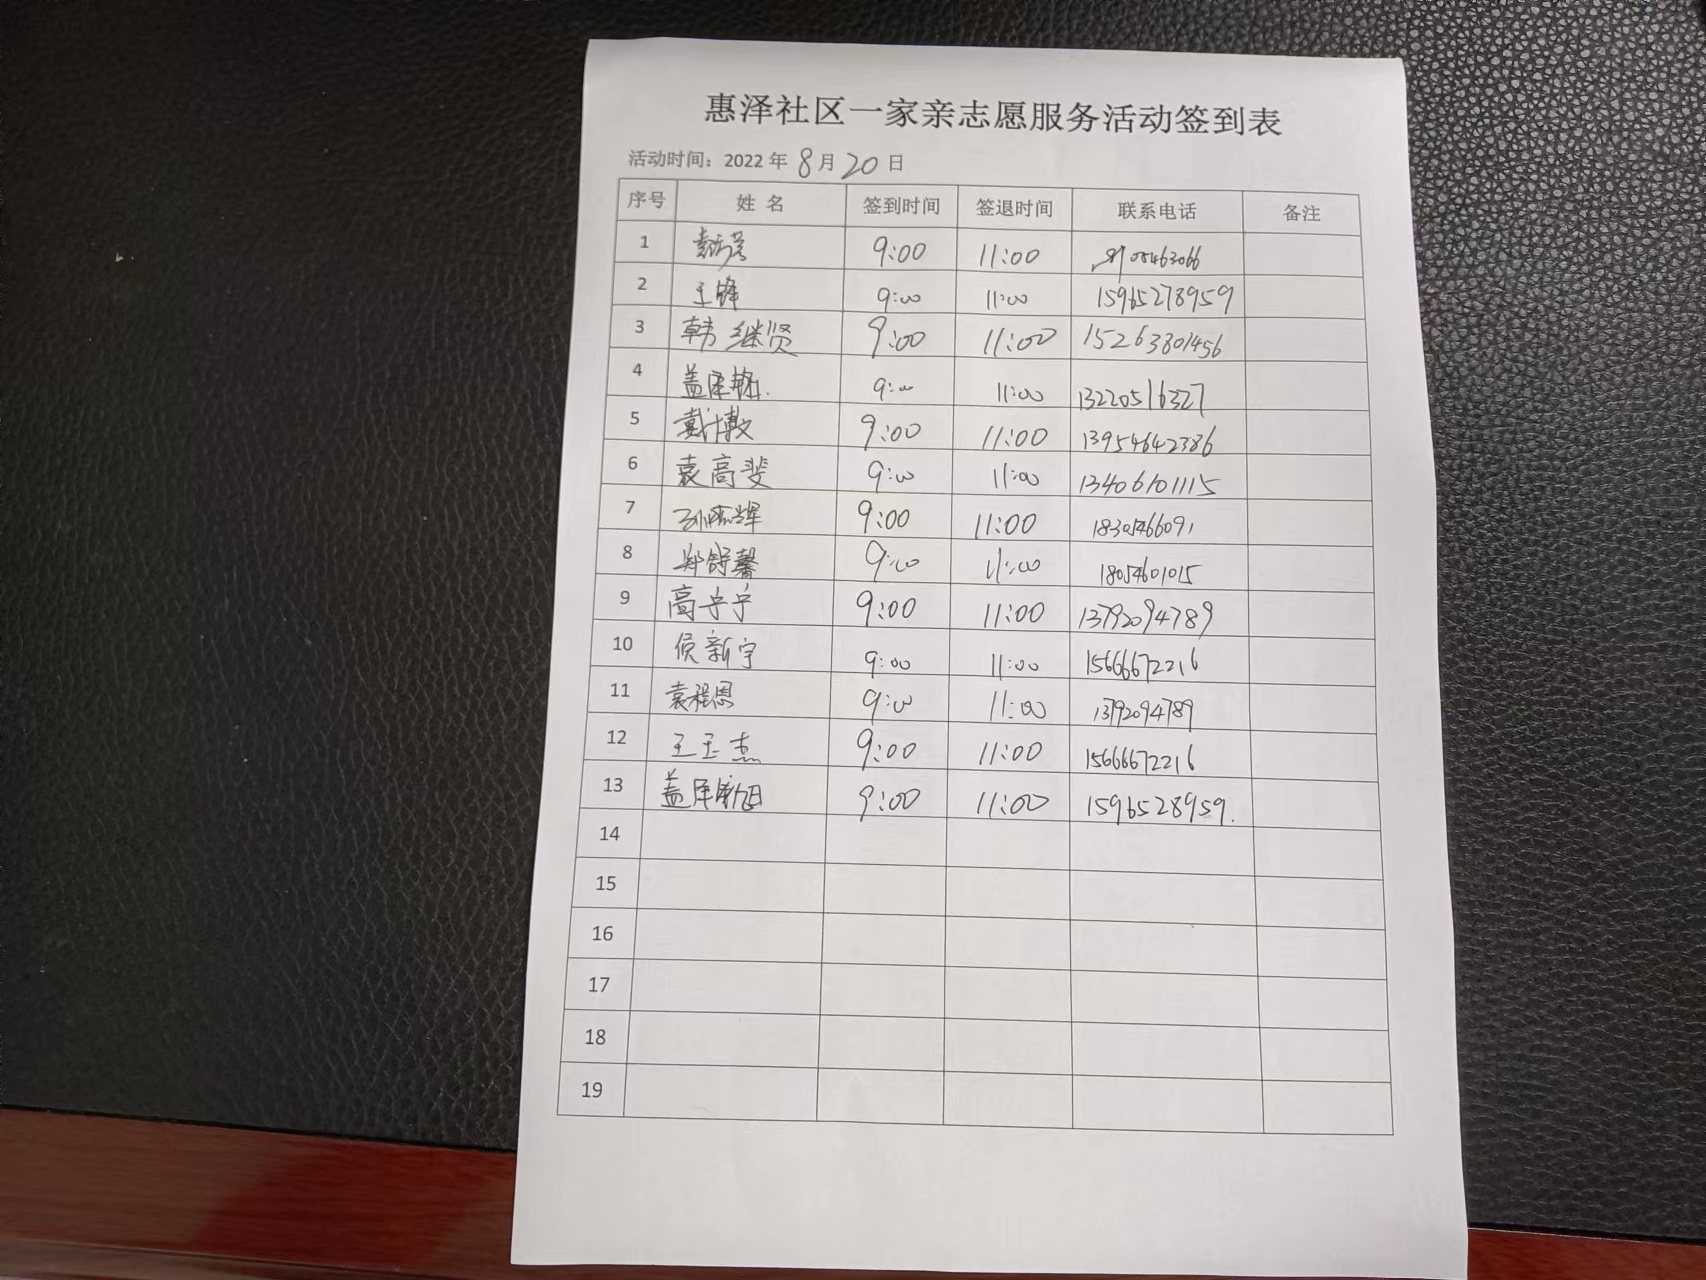 惠泽社区一家亲志愿服务活动签到表
活动时间：2022 年 8 月 20 日
序号 姓 名 签到时间 签退时间 联系电话 备注
1 9:00 11:00
2 王锋 9:00 11:00 15965278959
3 韩继贤 9:00 11:00 15263801456
4 盖泽 9:00 11:00 13220516327
5 戴博文 9:00 11:00 13954642386
6 袁高斐 9:00 11:00 13406101115
7 9:00 11:00 18301466091
8 郑舒馨 9:00 11:00 18054601015
9 高宁宁 9:00 11:00 13792094789
10 侯新宇 9:00 11:00 15666672216
11 袁程恩 9:00 11:00 13792094789
12 王玉杰 9:00 11:00 15666672216
13 盖泽新旭 9:00 11:00 1596528959.
14
15
16
17
18
19